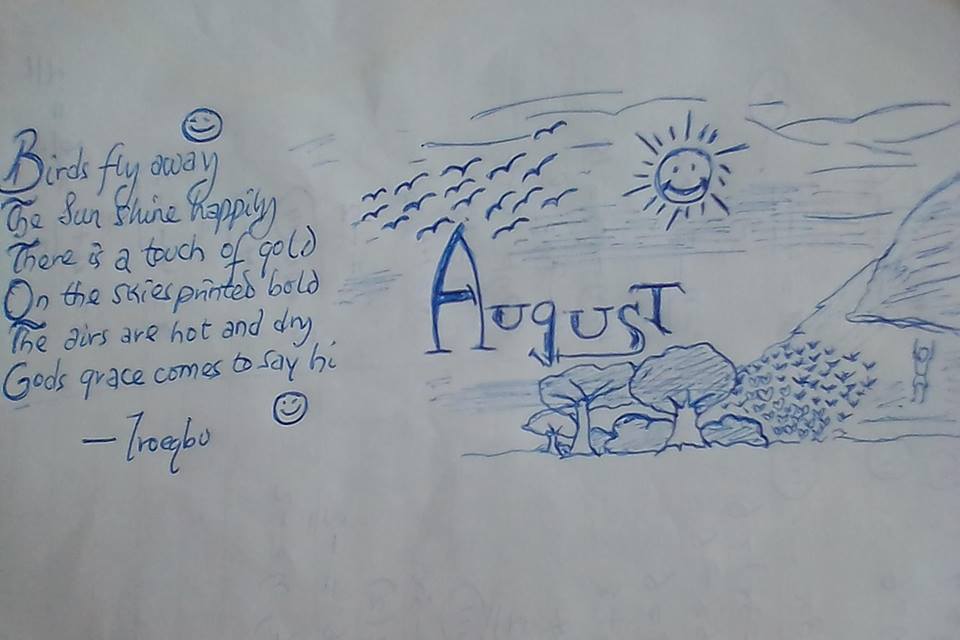 Birds fly away
The Sun Shine happily
There is a touch of gold
On the skies printed bold
The airs are hot and dry
Gods grace comes to say hi
— Iroegbu
August